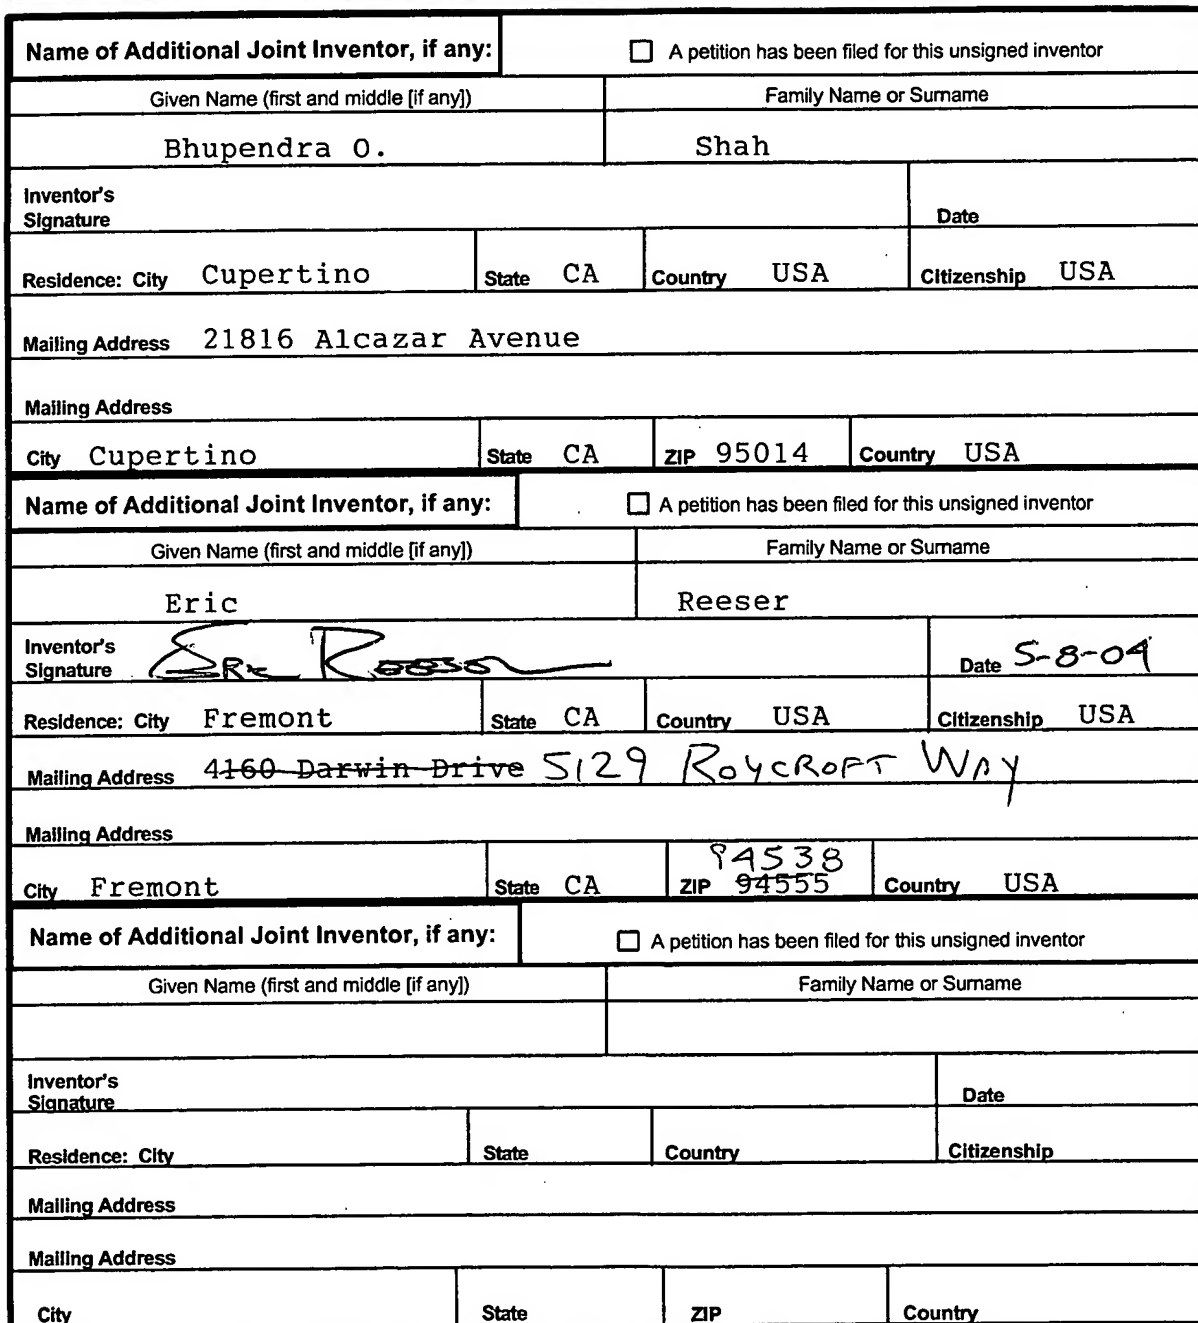 Name of Additional Joint Inventor, if any: ☐ A petition has been filed for this unsigned inventor
Given Name (first and middle [if any]) Family Name or Surname
Bhupendra O. Shah
Inventor's
Signature Date
Residence: City Cupertino State CA Country USA Citizenship USA
Mailing Address 21816 Alcazar Avenue
Mailing Address
City Cupertino State CA ZIP 95014 Country USA
Name of Additional Joint Inventor, if any: ☐ A petition has been filed for this unsigned inventor
Given Name (first and middle [if any]) Family Name or Surname
Eric Reeser
Inventor's
Signature Date 5-8-04
Residence: City Fremont State CA Country USA Citizenship USA
Mailing Address 4160 Darwin Drive 5129 ROYCROFT WAY
Mailing Address
94538
City Fremont State CA ZIP 94555 Country USA
Name of Additional Joint Inventor, if any: ☐ A petition has been filed for this unsigned inventor
Given Name (first and middle [if any]) Family Name or Surname
Inventor's
Signature Date
Residence: City State Country Citizenship
Mailing Address
Mailing Address
City State ZIP Country